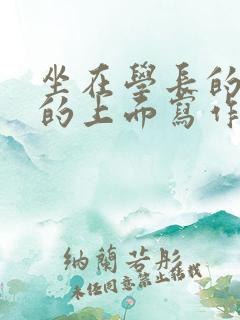 坐在學長的
的上面寫作
納蘭若彤
未经同意禁止转载